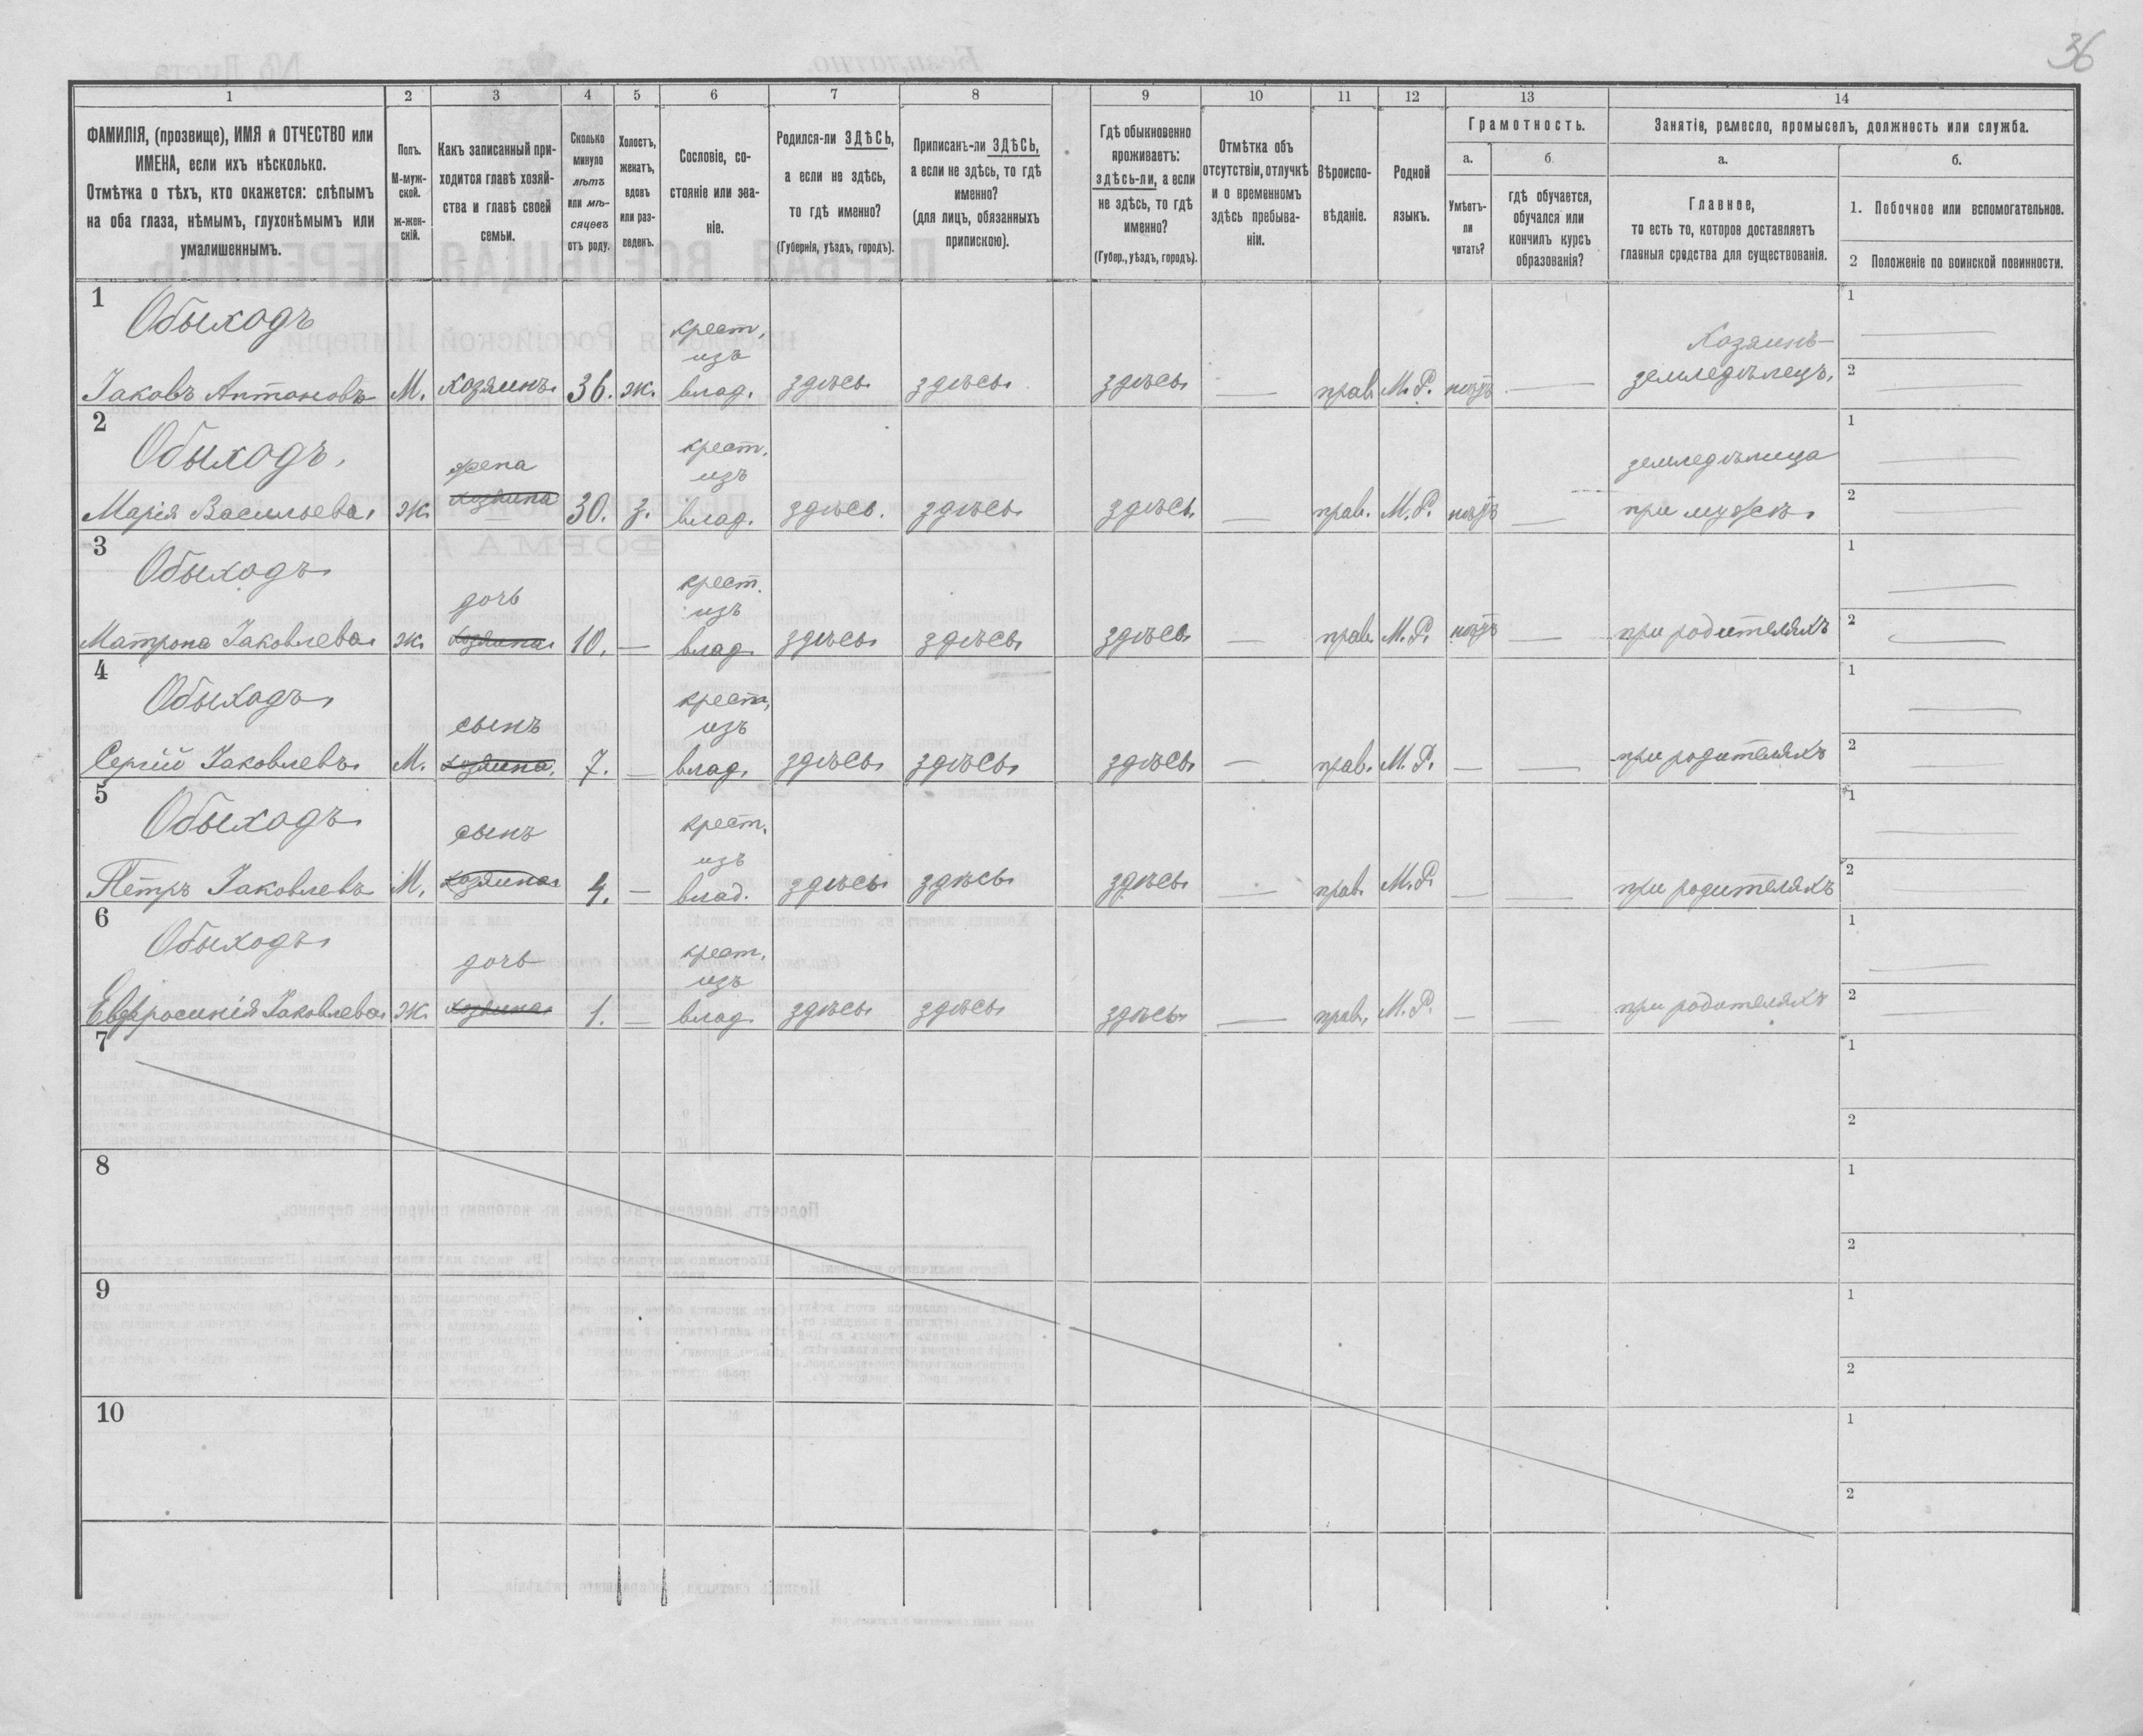 36
1 2 3 4 5 6 7 8 9 10 11 12 13 14
ФАМИЛІЯ, (прозвище), ИМЯ и ОТЧЕСТВО или
ИМЕНА, если ихъ нѣсколько.
Отмѣтка о тѣхъ, кто окажется: слѣпымъ
на оба глаза, нѣмымъ, глухонѣмымъ или
умалишеннымъ.
Полъ.
М-муж-
ской.
ж-жен-
скій.
Какъ записанный при-
ходится главѣ хозяй-
ства и главѣ своей
семьи.
Сколько
минуло
лѣтъ
или мѣ-
сяцевъ
отъ роду.
Холостъ,
женатъ,
вдовъ
или раз-
веденъ.
Сословіе, со-
стояніе или зва-
ніе.
Родился-ли ЗДѢСЬ,
а если не здѣсь,
то гдѣ именно?
(Губернія, уѣздъ, городъ).
Приписанъ-ли ЗДѢСЬ,
а если не здѣсь, то гдѣ
именно?
(для лицъ, обязанныхъ
припискою).
Гдѣ обыкновенно
проживаетъ:
здѣсь-ли, а если
не здѣсь, то гдѣ
именно?
(Губер., уѣздъ, городъ).
Отмѣтка объ
отсутствіи, отлучкѣ
и о временномъ
здѣсь пребыва-
ніи.
Вѣроиспо-
вѣданіе.
Родной
языкъ.
Грамотность.
а.
Умѣетъ-
ли
читать?
б.
гдѣ обучается,
обучался или
кончилъ курсъ
образованія?
Занятіе, ремесло, промыселъ, должность или служба.
а.
Главное,
то есть то, которое доставляетъ
главныя средства для существованія.
б.
1. Побочное или вспомогательное.
2 Положеніе по воинской повинности.
1
Обыходъ
крест.
изъ
Хозяинъ-
1
Іаковъ Антоновъ М. хозяинъ 36. ж. влад. здѣсь здѣсь здѣсь — прав. М.Р. нѣтъ — земледѣлецъ.
2
2
Обыходъ.
жена
крест.
изъ
земледѣлица
1
Марія Васильева ж. хозяина 30. з. влад. здѣсь. здѣсь здѣсь — прав. М.Р. нѣтъ — при мужѣ.
2
3
Обыходъ
дочь
крест.
изъ
1
Матрона Іаковлева ж. хозяина 10. — влад. здѣсь здѣсь здѣсь — прав. М.Р. нѣтъ — при родителяхъ
2
4
Обыходъ
сынъ
крест.
изъ
1
Сергій Іаковлевъ М. хозяина 7. — влад. здѣсь здѣсь здѣсь — прав. М.Р. — — при родителяхъ
2
5
Обыходъ
сынъ
крест.
изъ
1
Петръ Іаковлевъ М. хозяина 4. — влад. здѣсь здѣсь здѣсь — прав. М.Р. — — при родителяхъ
2
6
Обыходъ
дочь
крест.
изъ
1
Евфросинія Іаковлева ж. хозяина 1. — влад. здѣсь здѣсь здѣсь — прав. М.Р. — — при родителяхъ
2
7
1
2
8
1
2
9
1
2
10
1
2